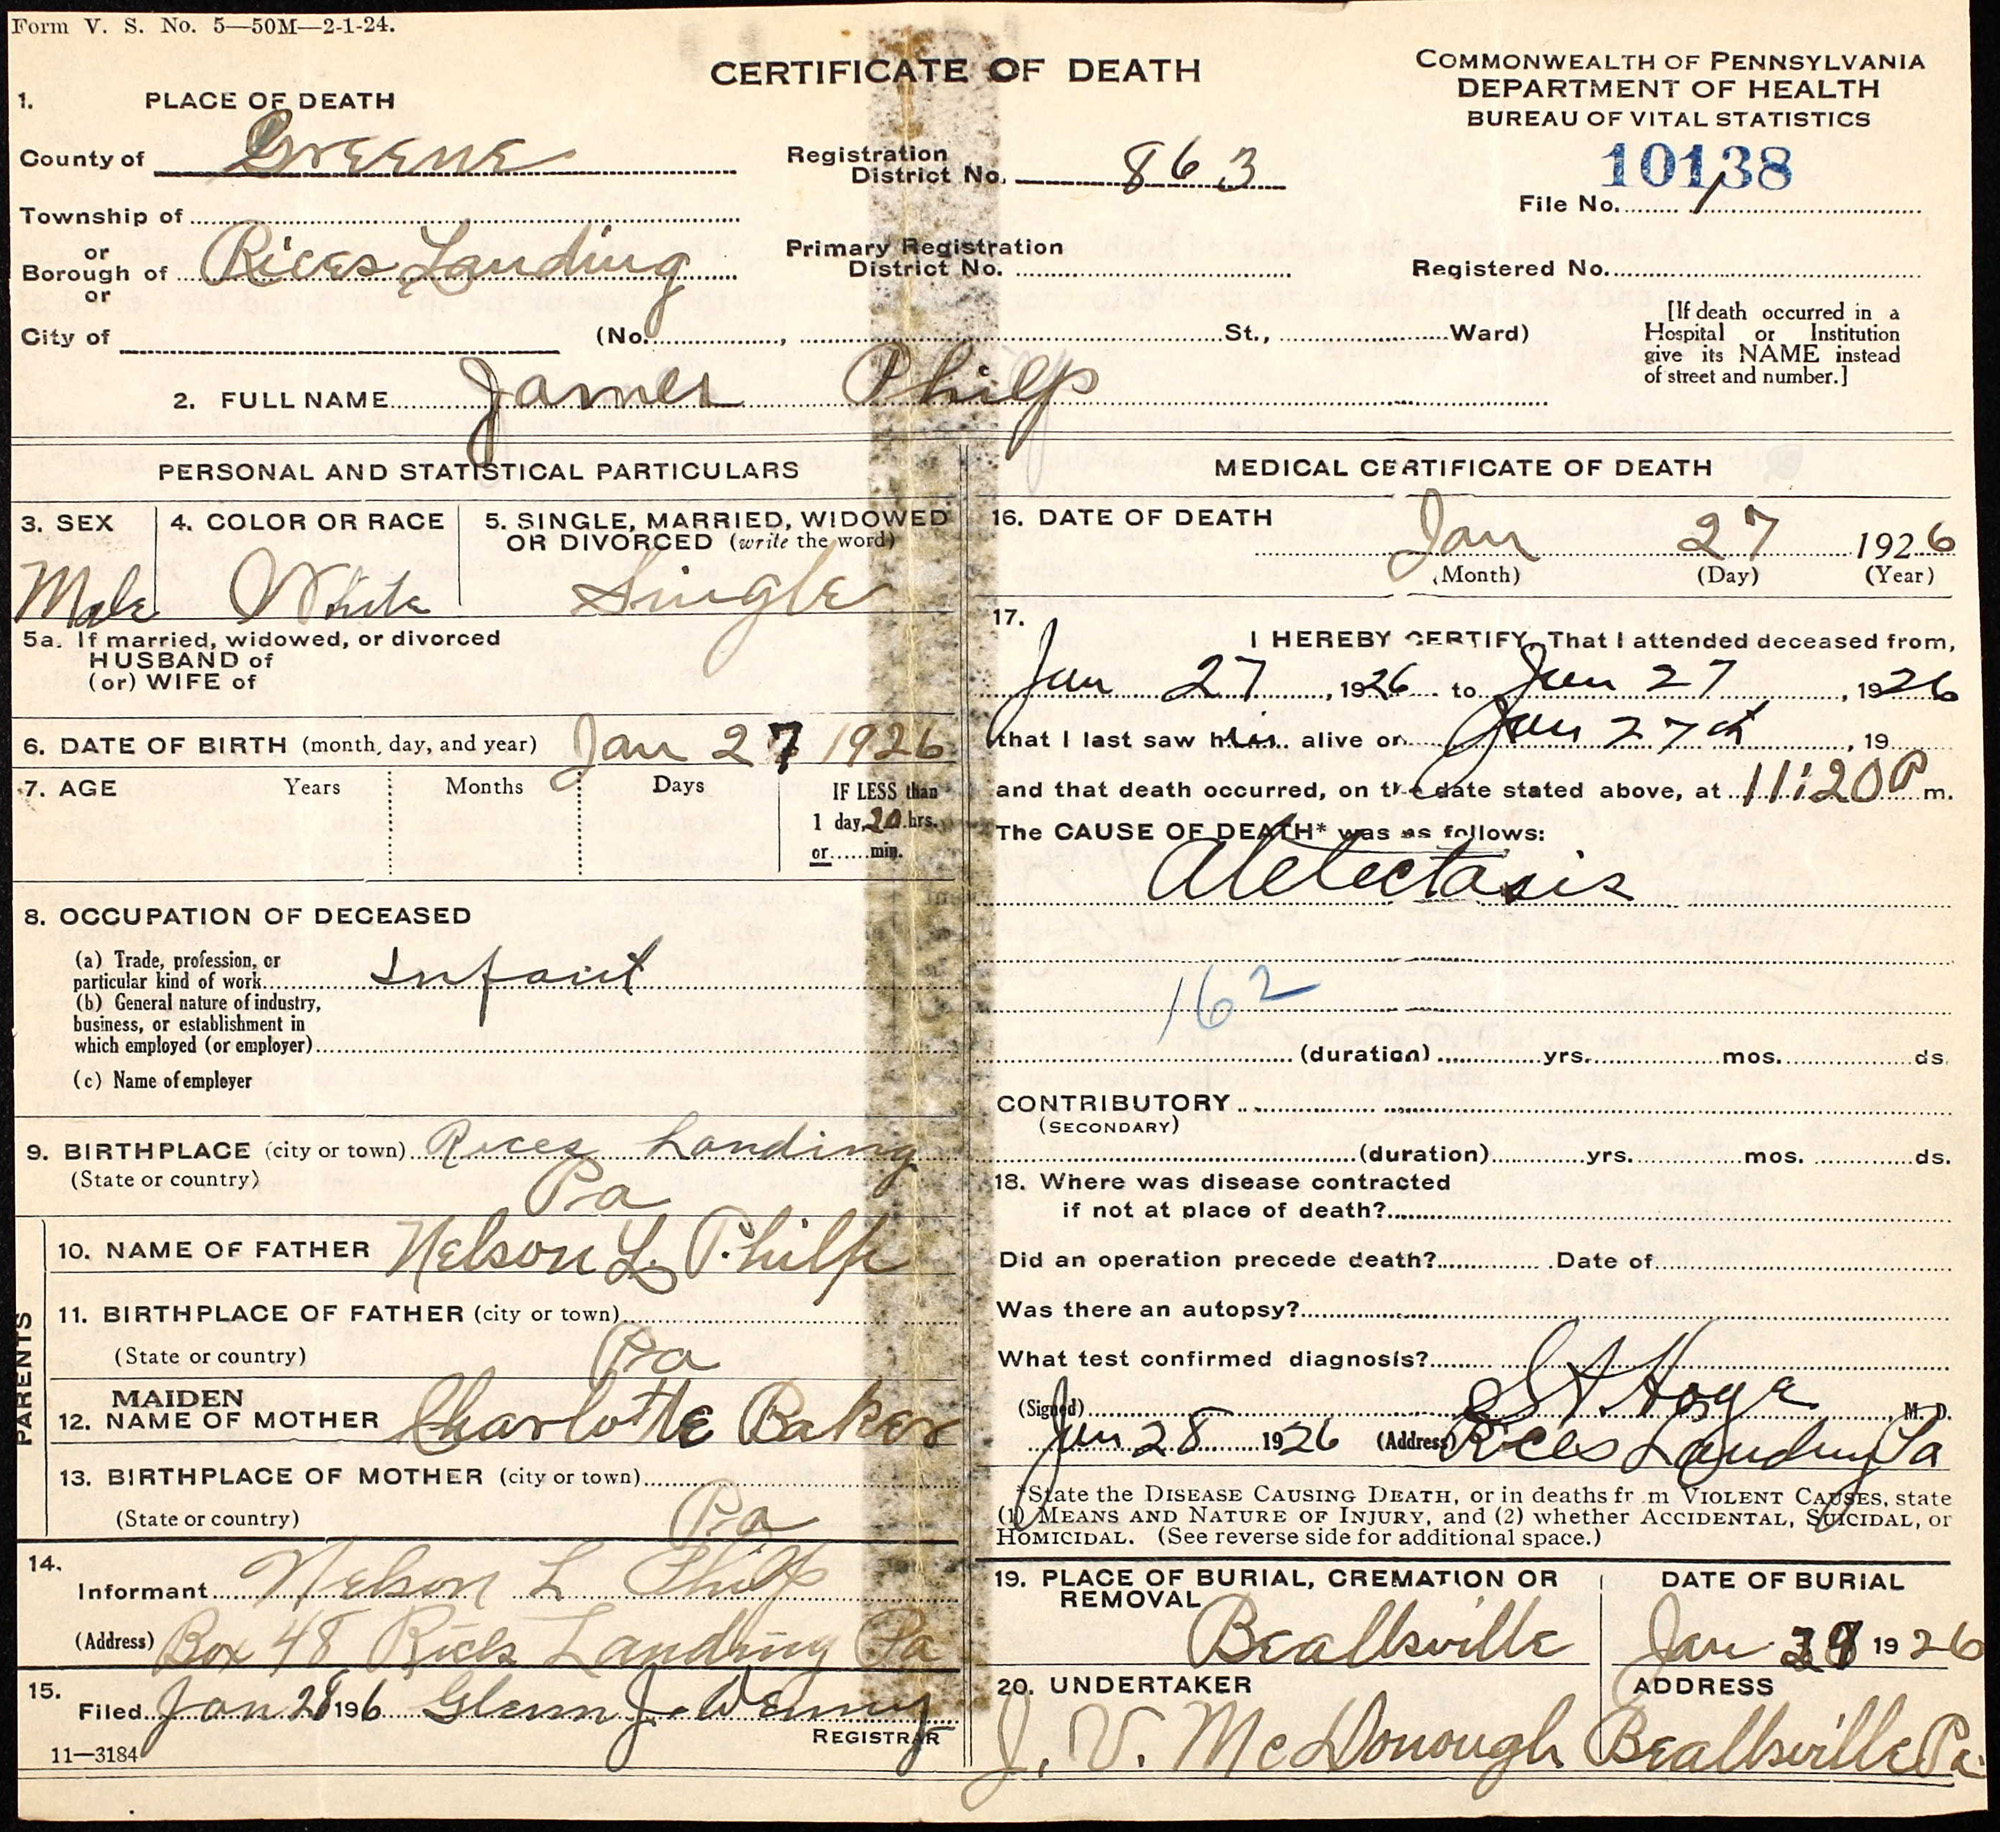 Form V. S. No. 5—50M—2-1-24.
CERTIFICATE OF DEATH
COMMONWEALTH OF PENNSYLVANIA
DEPARTMENT OF HEALTH
BUREAU OF VITAL STATISTICS
10138
1. PLACE OF DEATH
County of Greene
Registration District No. 863
File No. 1
Township of
or
Borough of Rices Landing
or
Primary Registration District No.
Registered No.
City of (No. , St., Ward)
[If death occurred in a Hospital or Institution give its NAME instead of street and number.]
2. FULL NAME James Philp
PERSONAL AND STATISTICAL PARTICULARS
3. SEX
Male
4. COLOR OR RACE
White
5. SINGLE, MARRIED, WIDOWED
OR DIVORCED (write the word)
Single
5a. If married, widowed, or divorced
HUSBAND of
(or) WIFE of
6. DATE OF BIRTH (month, day, and year) Jan 27 1926
7. AGE Years Months Days
IF LESS than
1 day, 20 hrs.
or......min.
8. OCCUPATION OF DECEASED
(a) Trade, profession, or
particular kind of work Infant
(b) General nature of industry,
business, or establishment in
which employed (or employer)
(c) Name of employer
9. BIRTHPLACE (city or town) Rices Landing
(State or country) Pa
PARENTS
10. NAME OF FATHER Nelson L. Philp
11. BIRTHPLACE OF FATHER (city or town)
(State or country) Pa
MAIDEN
12. NAME OF MOTHER Charlotte Baker
13. BIRTHPLACE OF MOTHER (city or town)
(State or country) Pa
14.
Informant Nelson L Philp
(Address) Box 48 Rices Landing Pa
15.
Filed Jan 28 196 Glenn J.
REGISTRAR
11—3184
MEDICAL CERTIFICATE OF DEATH
16. DATE OF DEATH
Jan 27 1926
(Month) (Day) (Year)
17.
I HEREBY CERTIFY, That I attended deceased from,
Jan 27, 1926 to Jan 27, 1926
that I last saw him alive on Jan 27th, 19
and that death occurred, on the date stated above, at 11:20 P m.
The CAUSE OF DEATH* was as follows:
Atelectasis
162
(duration) yrs. mos. ds.
CONTRIBUTORY
(SECONDARY)
(duration) yrs. mos. ds.
18. Where was disease contracted
if not at place of death?
Did an operation precede death? Date of
Was there an autopsy?
What test confirmed diagnosis?
(Signed) Hoge M. D.
Jan 28 1926 (Address) Rices Landing Pa
*State the DISEASE CAUSING DEATH, or in deaths fr m VIOLENT CAUSES, state
(1) MEANS AND NATURE OF INJURY, and (2) whether ACCIDENTAL, SUICIDAL, or
HOMICIDAL. (See reverse side for additional space.)
19. PLACE OF BURIAL, CREMATION OR
REMOVAL
Beallsville
DATE OF BURIAL
Jan 1926
20. UNDERTAKER
J. V. McDonough
ADDRESS
Beallsville Pa.